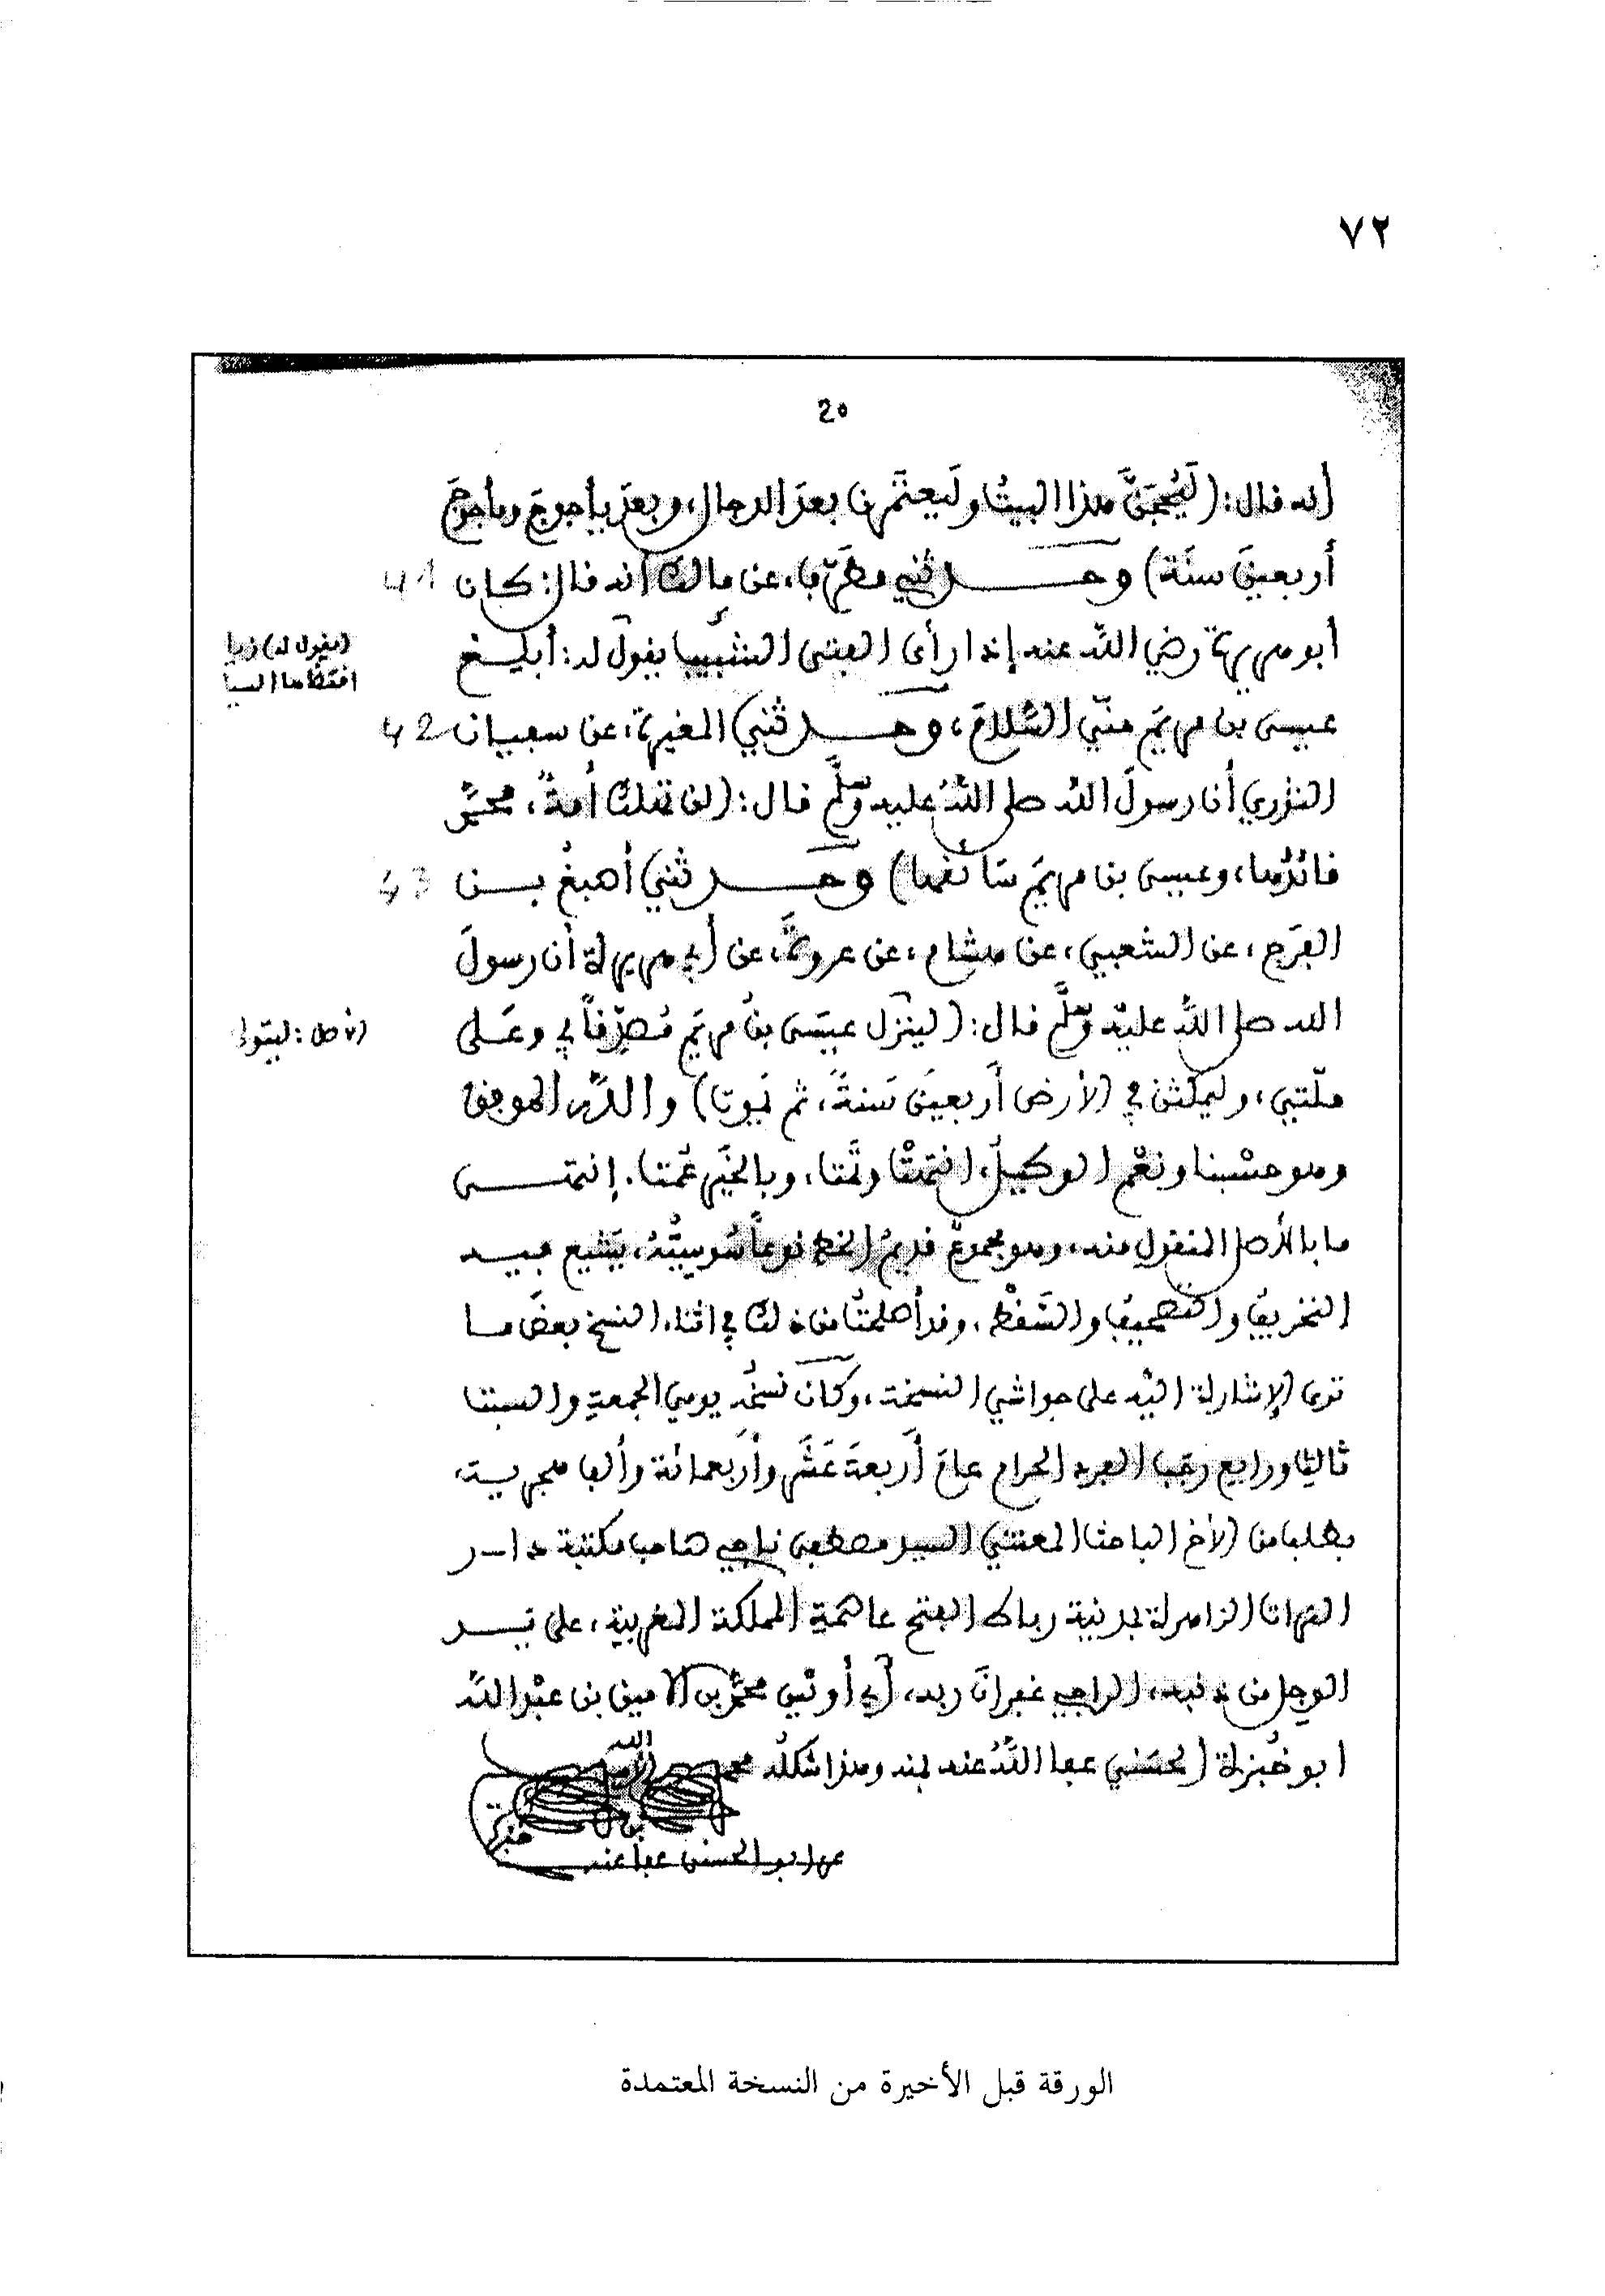 ٧٢
20
أنه قال: (لَيُحَجَّنَّ هذا البيتُ وليعتَمَرنَّ بعدَ الدجال، وبعدَ يأجوجَ ومأجوجَ
أربعينَ سنَة) وحدثني مطرّف، عن مالك أنه قال: كان 41
أبو هريرة رضي اللّه عنه إذا رأى الفتى الشَّبيب يقول له: أبلِغ
(يقول له) زيا
اقتضاها السيا
عيسى بن مريَم منّي السَّلامَ، وحدثني المغيرة، عن سفيان 42
الثوري أن رسولَ اللّه صلى اللّهُ عليه وسلَّم قال: (لن تهلك أمةٌ، محمَّد
قائدُها، وعيسى بن مريَم سَائقها) وحدثني أصبغُ بن 43
الفرَج، عن الشعبي، عن هشام، عن عروة، عن أبي هريرة أن رسولَ
اللّه صلى اللّه عليه وسلَّم قال: (لينزل عيسَى بنُ مريَم مُصدِّقاً بي وعَلى
الأصل: ليتول
ملّتي، وليمكثن في الأرض أربعينَ سَنةً، ثم يَموت) واللّه الموفق
وهو حسْبنا ونعْم الوكيلُ، انتهتْ وتمَّت، وبالخيْر عمَّت. إنتهى
ما بالأصل المنقول منه، وهو مجموعٌ قديمُ الخط نوعاً سُوسيُّهُ، يَشيع فيه
التخريفُ والتصحيفُ والسَّقْط، وقد أصلحتُ من ذلك في اثناء النسخ بعضَ ما
ترى الإشارة اليْه على حواشي النسخة، وكان نسخُه يومي الجمعةِ والسبت
ثالث ورابع رجب الفرد الحرام عامَ أربعةَ عَشَر وأربعمائة وألف هجرية،
بطلب من الأخ الباحث المعتني السيد مصطفى ناجي صاحب مكتبة دار
التراث الزاهرة بمدينة رباط الفتح عاصمةِ المملكة المغربية، على يد
الوجِل من ذنبه، الراجي غفرانَ ربه، أبي أويْس محمَّد بن الامين بن عبْد اللّه
ابو خُبزة الحسَني عفا اللّهُ عنه بمنه وهذا شكلُه محمد الامين
بو خبزة
ابو الحسنى عفا عنه
الورقة قبل الأخيرة من النسخة المعتمدة